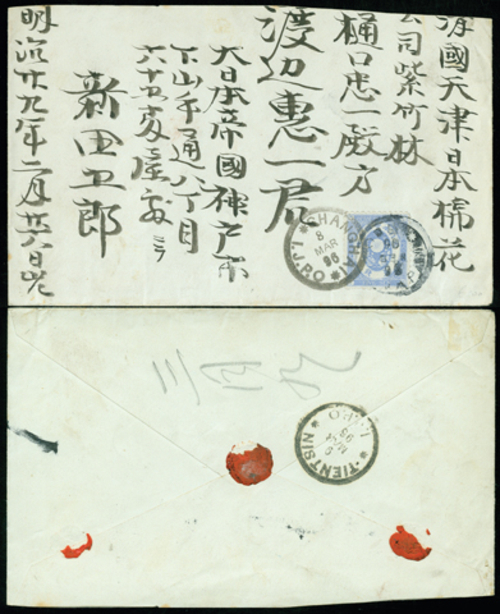 清國天津日本棉花
公司紫竹林
樋口忠一殿方
渡辺惠一君
大日本帝國神戸市
下山手通八丁目
六十五
新田
郎
明治廿九年二月廿六日
SHANGHAI
8
MAR
96
I.J.P.O
TIENTSIN
I.J.P.O